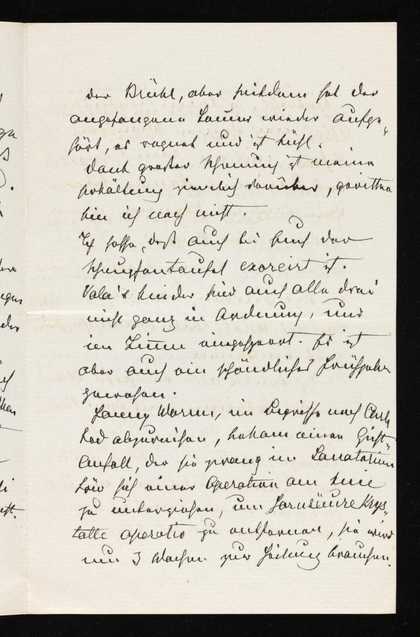 der Brühl, aber seitdem hat der
angefangene Sommer wieder aufge-
hört, es regnet und ist kühl.
Dank großer Schonung ist meine
Erkältung ziemlich vorüber, geritten
bin ich noch nicht.
Ich hoffe, daß auch bei Euch der
Schnupfenteufel exorcirt ist.
Vala's Kinder sind auch alle drei
nicht ganz in Ordnung, und
im Zimmer eingesperrt. Es ist
aber auch ein schändliches Frühjahr
gewesen.
Fanny Worm, im Begriffe nach Carls-
bad abzureisen, bekam einen Gicht-
Anfall, der sie zwang im Sanatorium
Löw sich einer Operation am
zu unterziehen, um Harnsäure Krys-
talle operativ zu entfernen, sie wird
nun 3 Wochen zur Heilung brauchen.